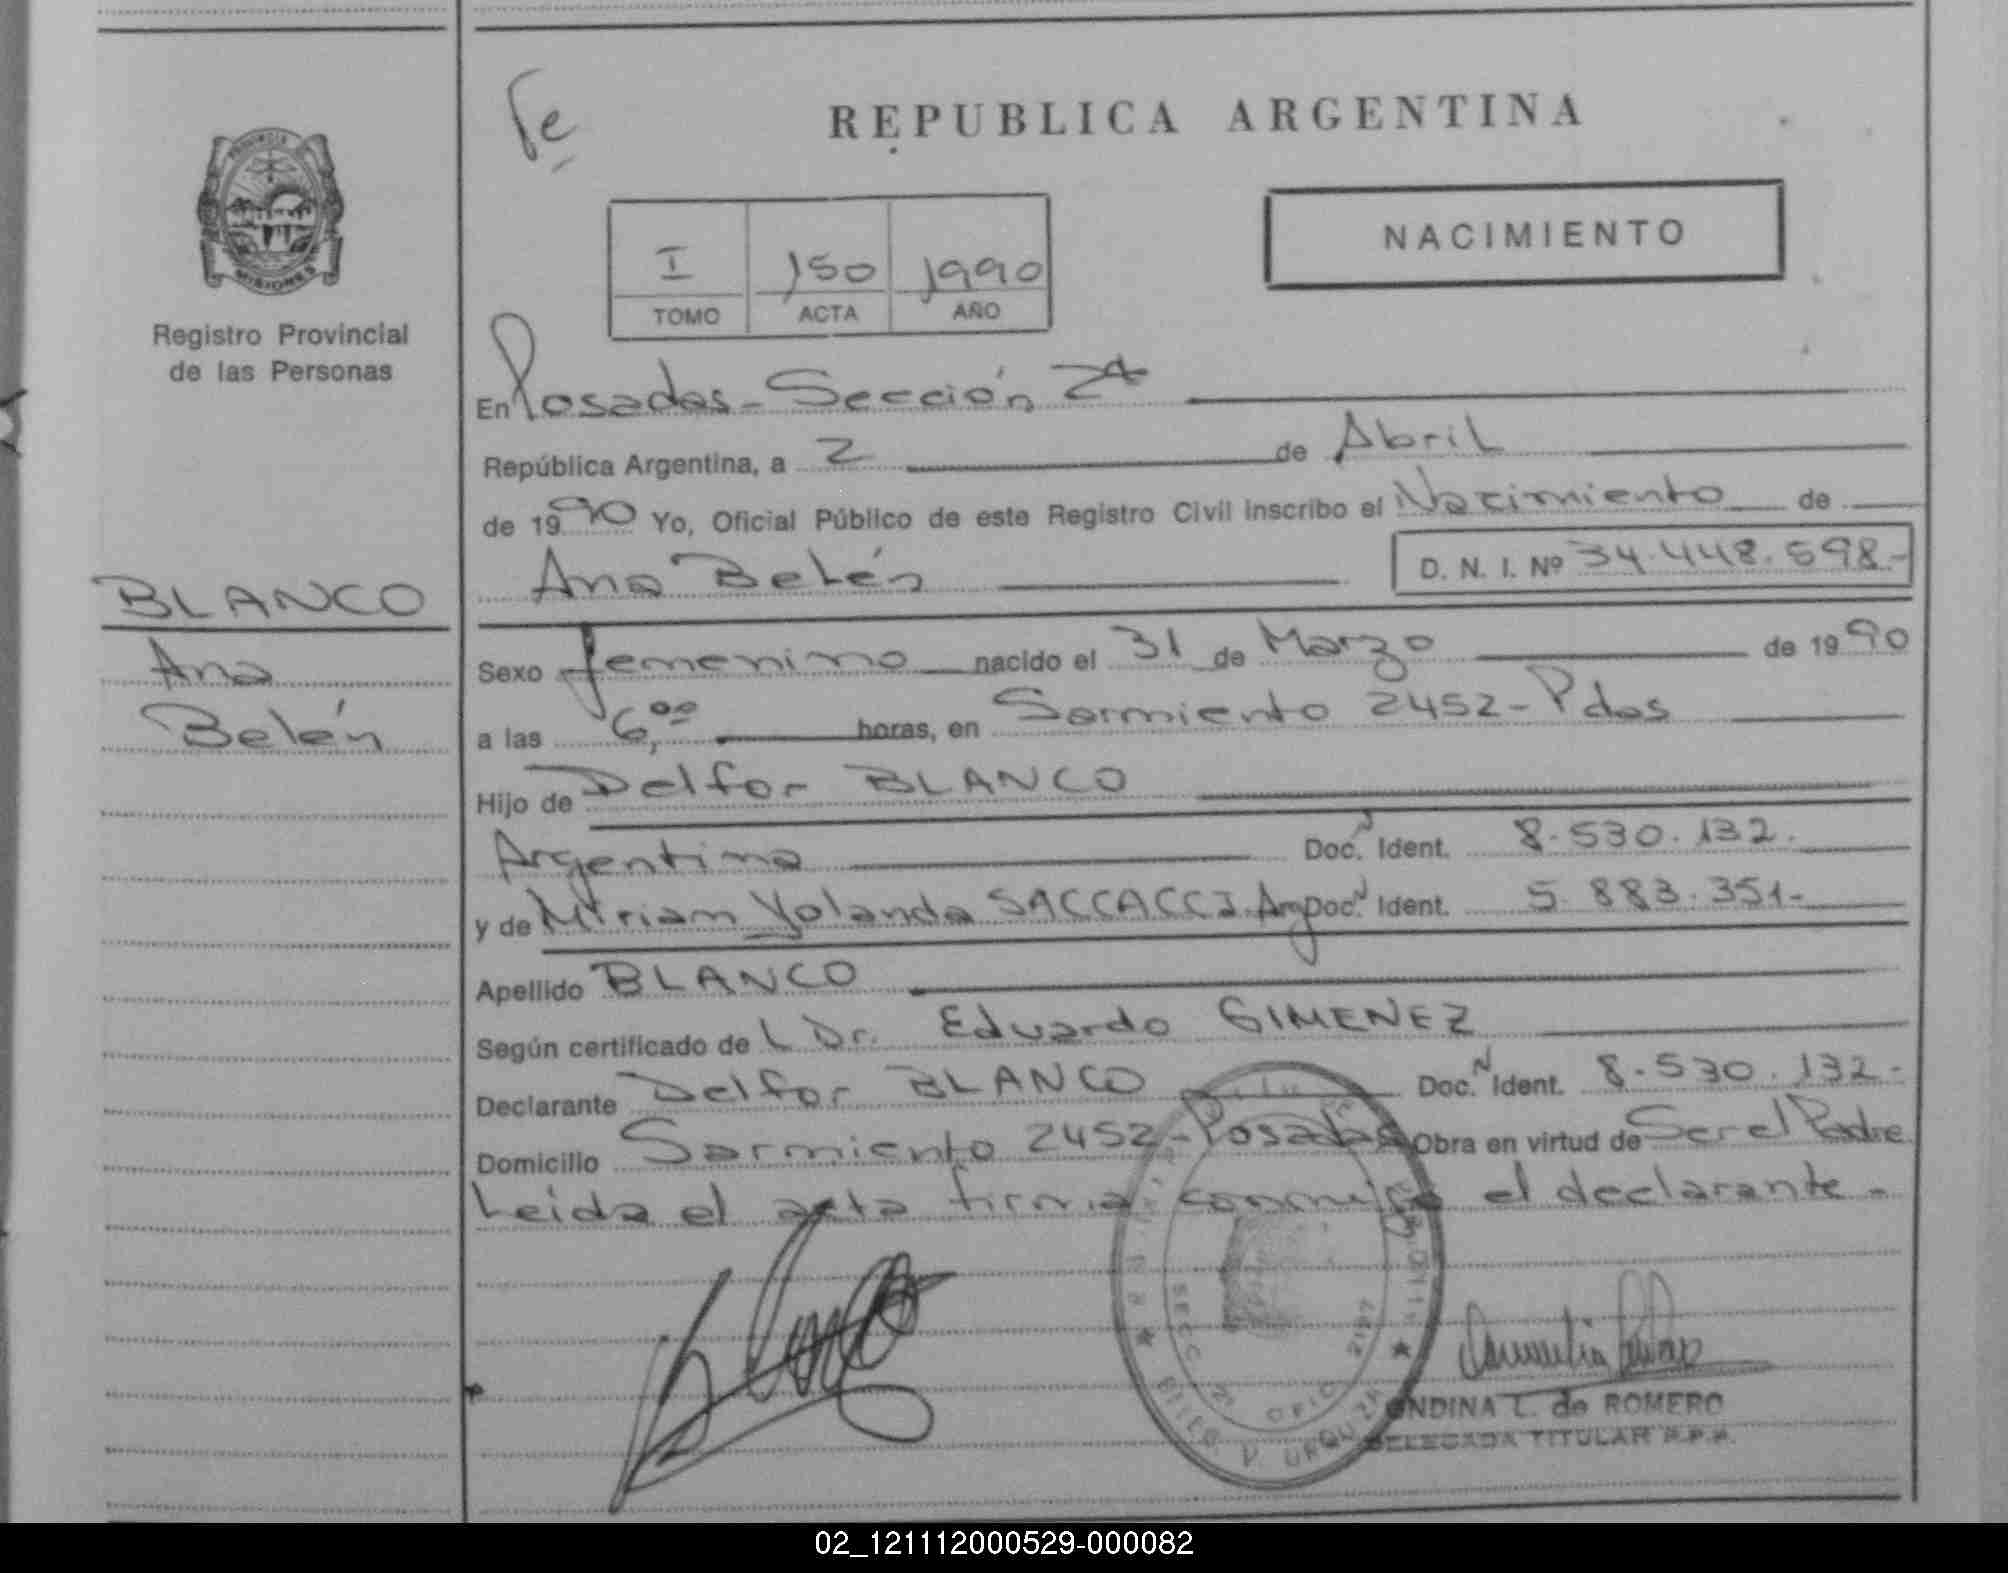 Fe
REPUBLICA ARGENTINA
PROVINCIA
MISIONES
Registro Provincial
de las Personas
I 150 1990
TOMO ACTA AÑO
NACIMIENTO
En Posadas - Sección 2ª
República Argentina, a 2 de Abril
de 1990 Yo, Oficial Público de este Registro Civil inscribo el Nacimiento de
Ana Belén D. N. I. Nº 34.448.598.-
BLANCO
Ana
Belén
Sexo femenino nacido el 31 de Marzo de 1990
a las 6,00 horas, en Sarmiento 2452 - Pdas
Hijo de Delfor BLANCO
Argentina Doc. N Ident. 8.530.132.
y de Miriam Yolanda SACCACCI Arg Doc. N Ident. 5.883.351-
Apellido BLANCO
Según certificado de L Dr. Eduardo GIMENEZ
Declarante Delfor BLANCO Doc. N Ident. 8.530.132-
Domicilio Sarmiento 2452 - Posadas Obra en virtud de Ser el Padre
Leida el acta firma conmigo el declarante.
SECC
OFIC 2197
URQUIZA
ONDINA L. de ROMERO
DELEGADA TITULAR R.P.P.
02_121112000529-000082